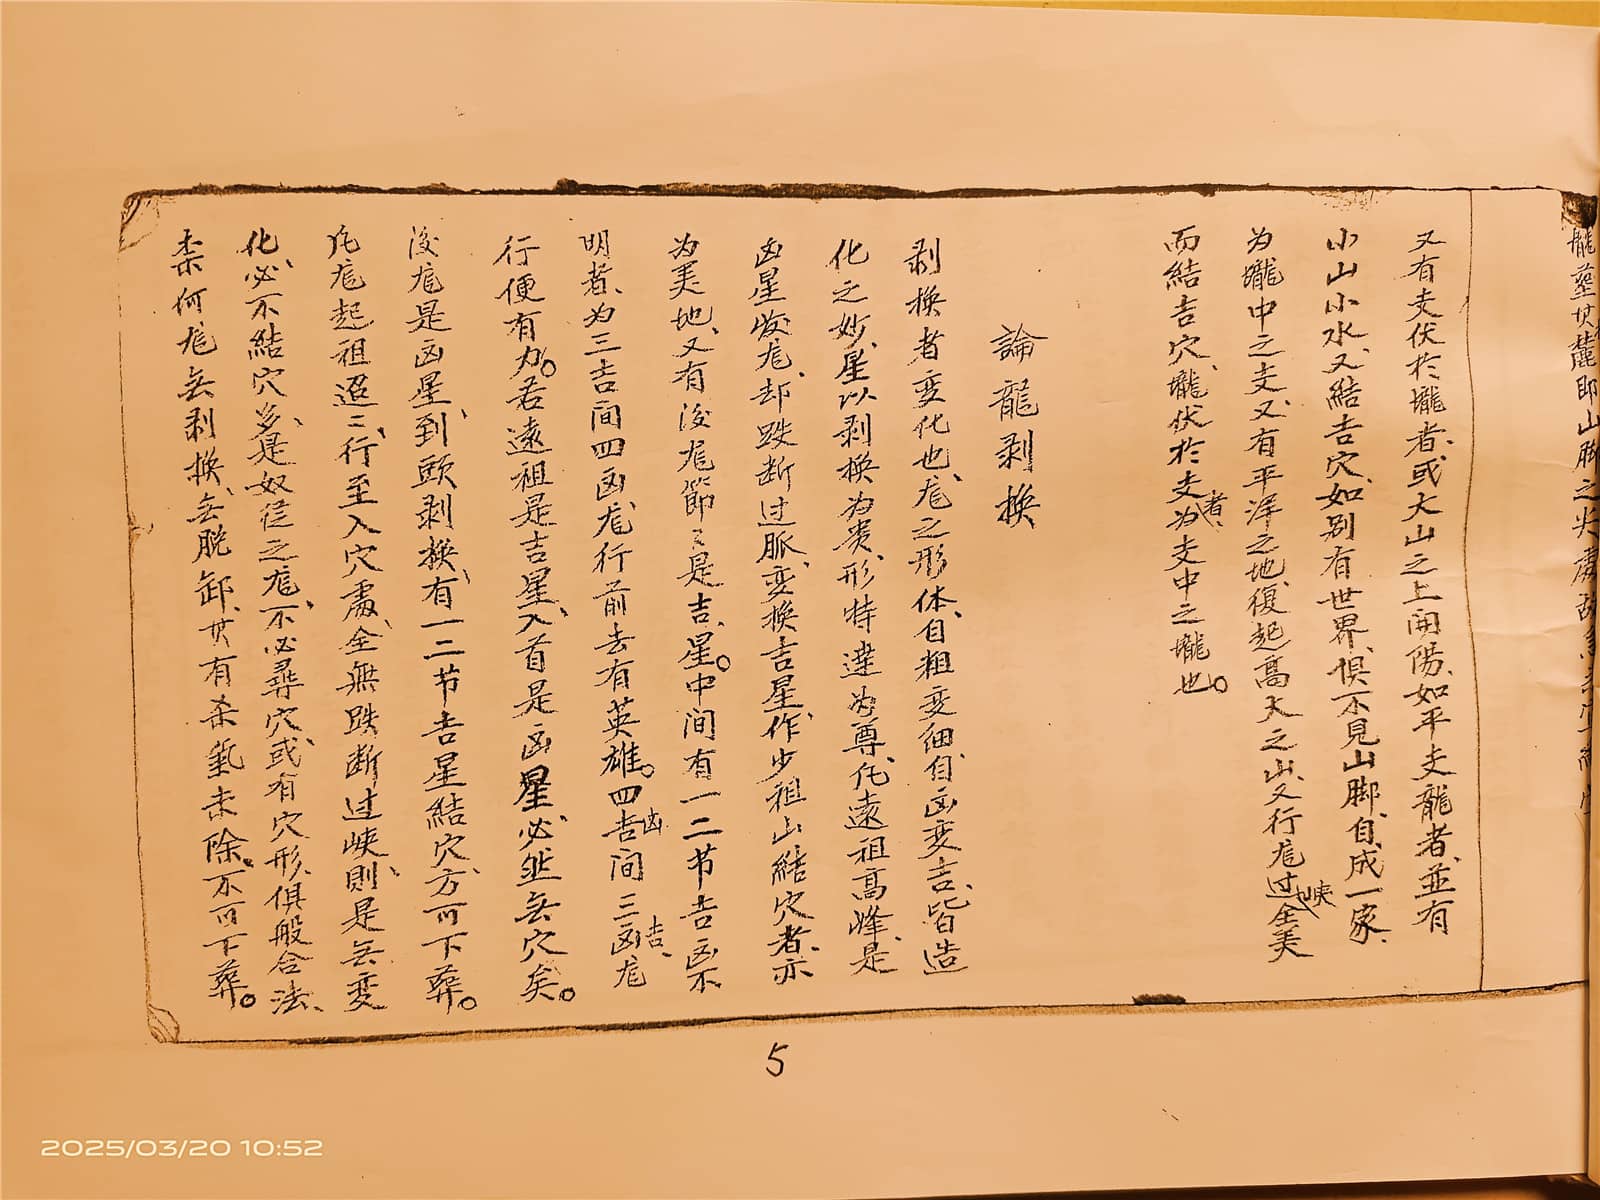 龍
即山脚之尖處
又有支伏於壠者、或大山之上開陽、如平支龍者、並有
小山小水、又結吉穴、如别有世界、俱不見山脚、自成一家、
为壠中之支、又有平洋之地、復起高大之山、又行尨过峡全美
而結吉穴、壠伏於支者、为支中之壠也。
論龍剥換
剥換者变化也、尨之形体、自粗变细、自凶变吉、皆造
化之妙、星以剥換为贵、形特達为尊、凡遠祖高峰、是
凶星發尨、却跌断过脈、变換吉星、作少祖山結穴者、亦
为美地、又有後尨節〻是吉星。中间有一二节吉凶不
明者、为三吉间四凶、尨行前去有英雄。四凶间三吉、尨
行便有力。若遠祖是吉星、入首是凶星、必然无穴矣。
後尨是凶星、到头剥換、有一二节吉星結穴、方可下葬。
凡尨起祖迢〻、行至入穴處、全無跌断过峡、則是无变
化、必不結穴、多是奴從之尨、不必尋穴、或有穴形、俱般合法、
柰何尨无剥換、无脱卸、其有杀氣未除。不可下葬。
5
2025/03/20 10:52